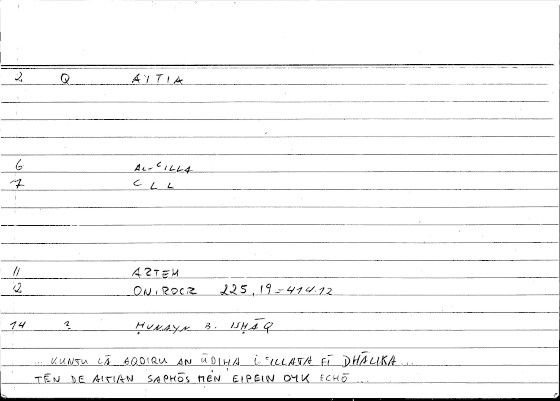 2 Q AITIA
6 AL-ʿILLA
7 ʿ L L
11 ARTEM
12 ONIROCR 225,19 = 414.12
14 2 ḤUNAYN B. ISḤĀQ
... KUNTU LĀ AQDIRU AN ŪḌIḤA L-ʿILLATA FĪ DHĀLIKA ...
TĒN DE AITIAN SAPHŌS MEN EIPEIN OYK ECHŌ ...